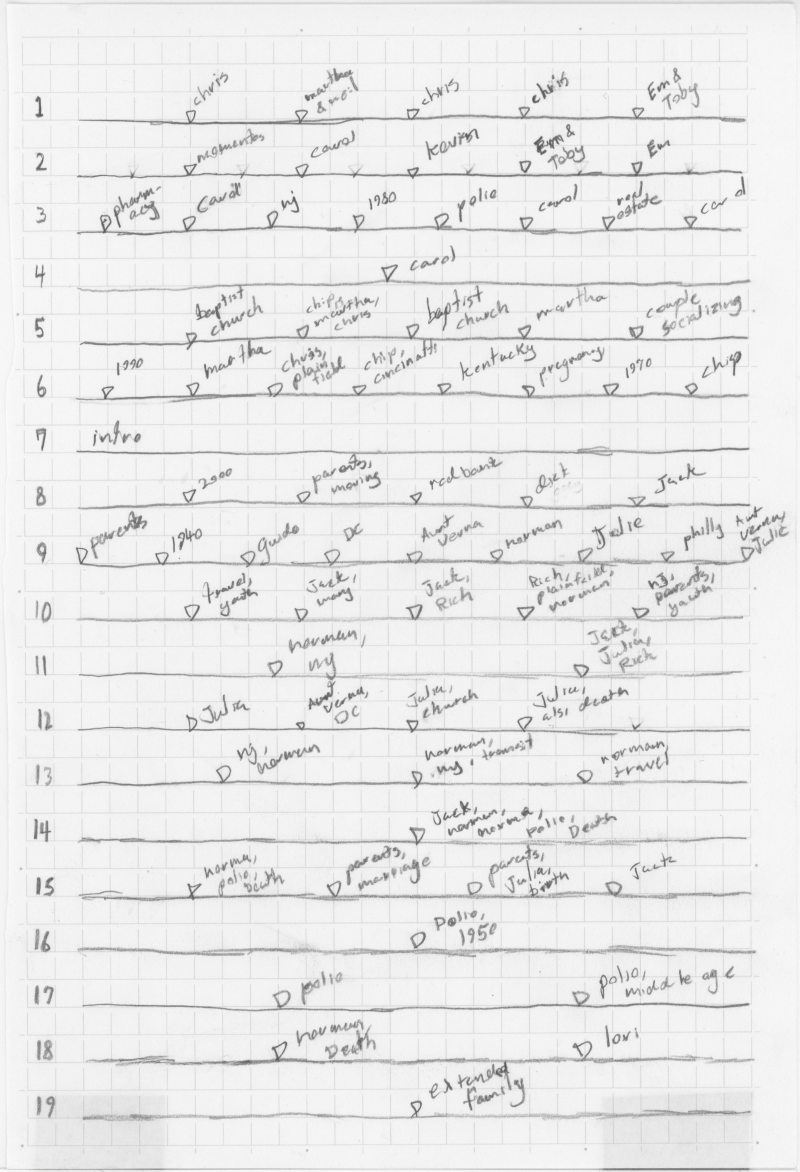 1 chris martha & neil chris chris Em & Toby
2 mementos carol kevin Em & Toby Em
3 pharmacy carol nj 1980 polio carol real estate carol
4 carol
5 baptist church chip, martha, chris baptist church martha couple socializing
6 1990 martha chris, plainfield chip, cincinatti kentucky pregnancy 1970 chip
7 intro
8 2000 parents, moving red bank dick Jack
9 parents 1940 guido DC Aunt Verna norman Julie philly Aunt Verna, Julie
10 travel, youth Jack, mary Jack, Rich Rich, plainfield, norman, nj, parents, youth
11 norman, ny Jack, Julia, Rich
12 Julia Aunt Verna, DC Julia, church Julia, als, death
13 nj, norman norman, ny, transit norman, travel
14 Jack, norman, norma, Polio, Death
15 norma, polio, Death parents, marriage parents, Julia, birth Jack
16 Polio, 1950
17 polio polio, middle age
18 norman, Death lori
19 extended family